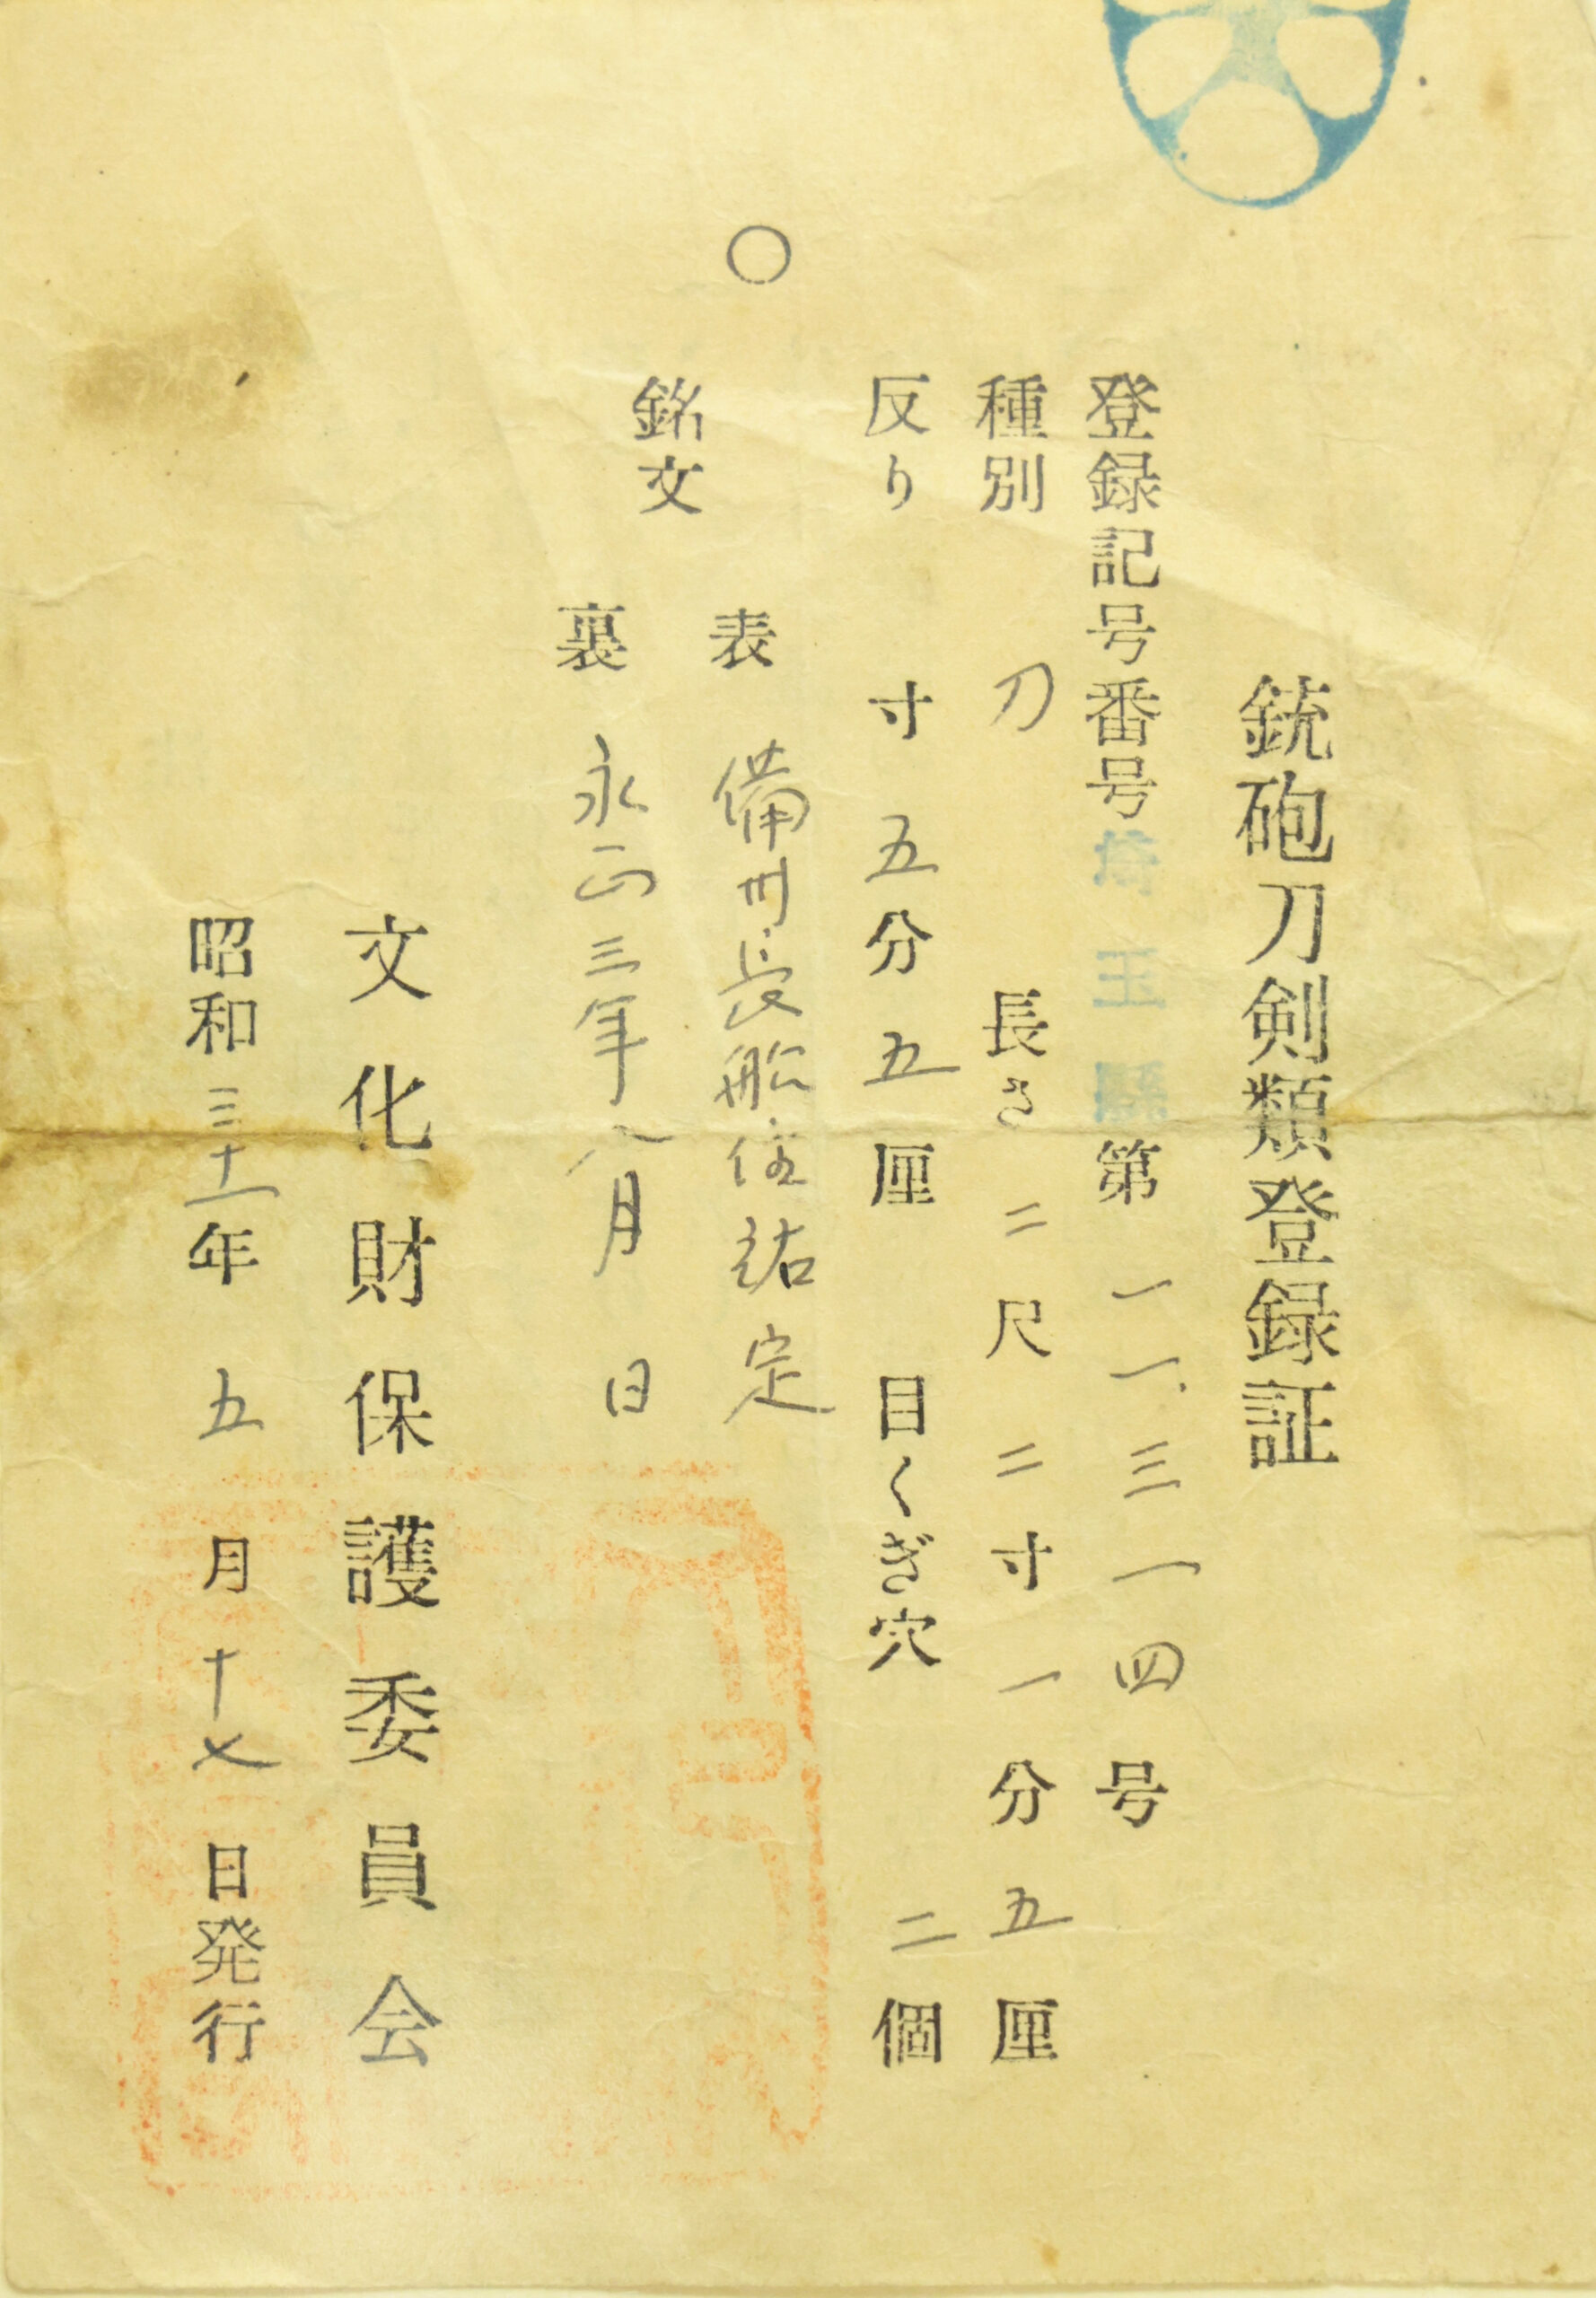 銃砲刀剣類登録証
登録記号番号埼玉縣第一一三一四号
種別 刀 長さ 二尺二寸一分五厘
反り 寸五分五厘 目くぎ穴 二個
銘文
表 備州長船住祐定
裏 永正三年八月日
文化財保護委員会
昭和三十一年五月十七日発行